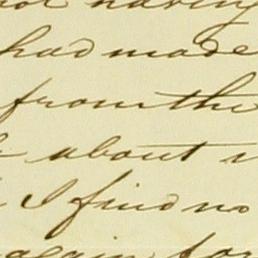 not having
had made
from the
about
I find no
again for